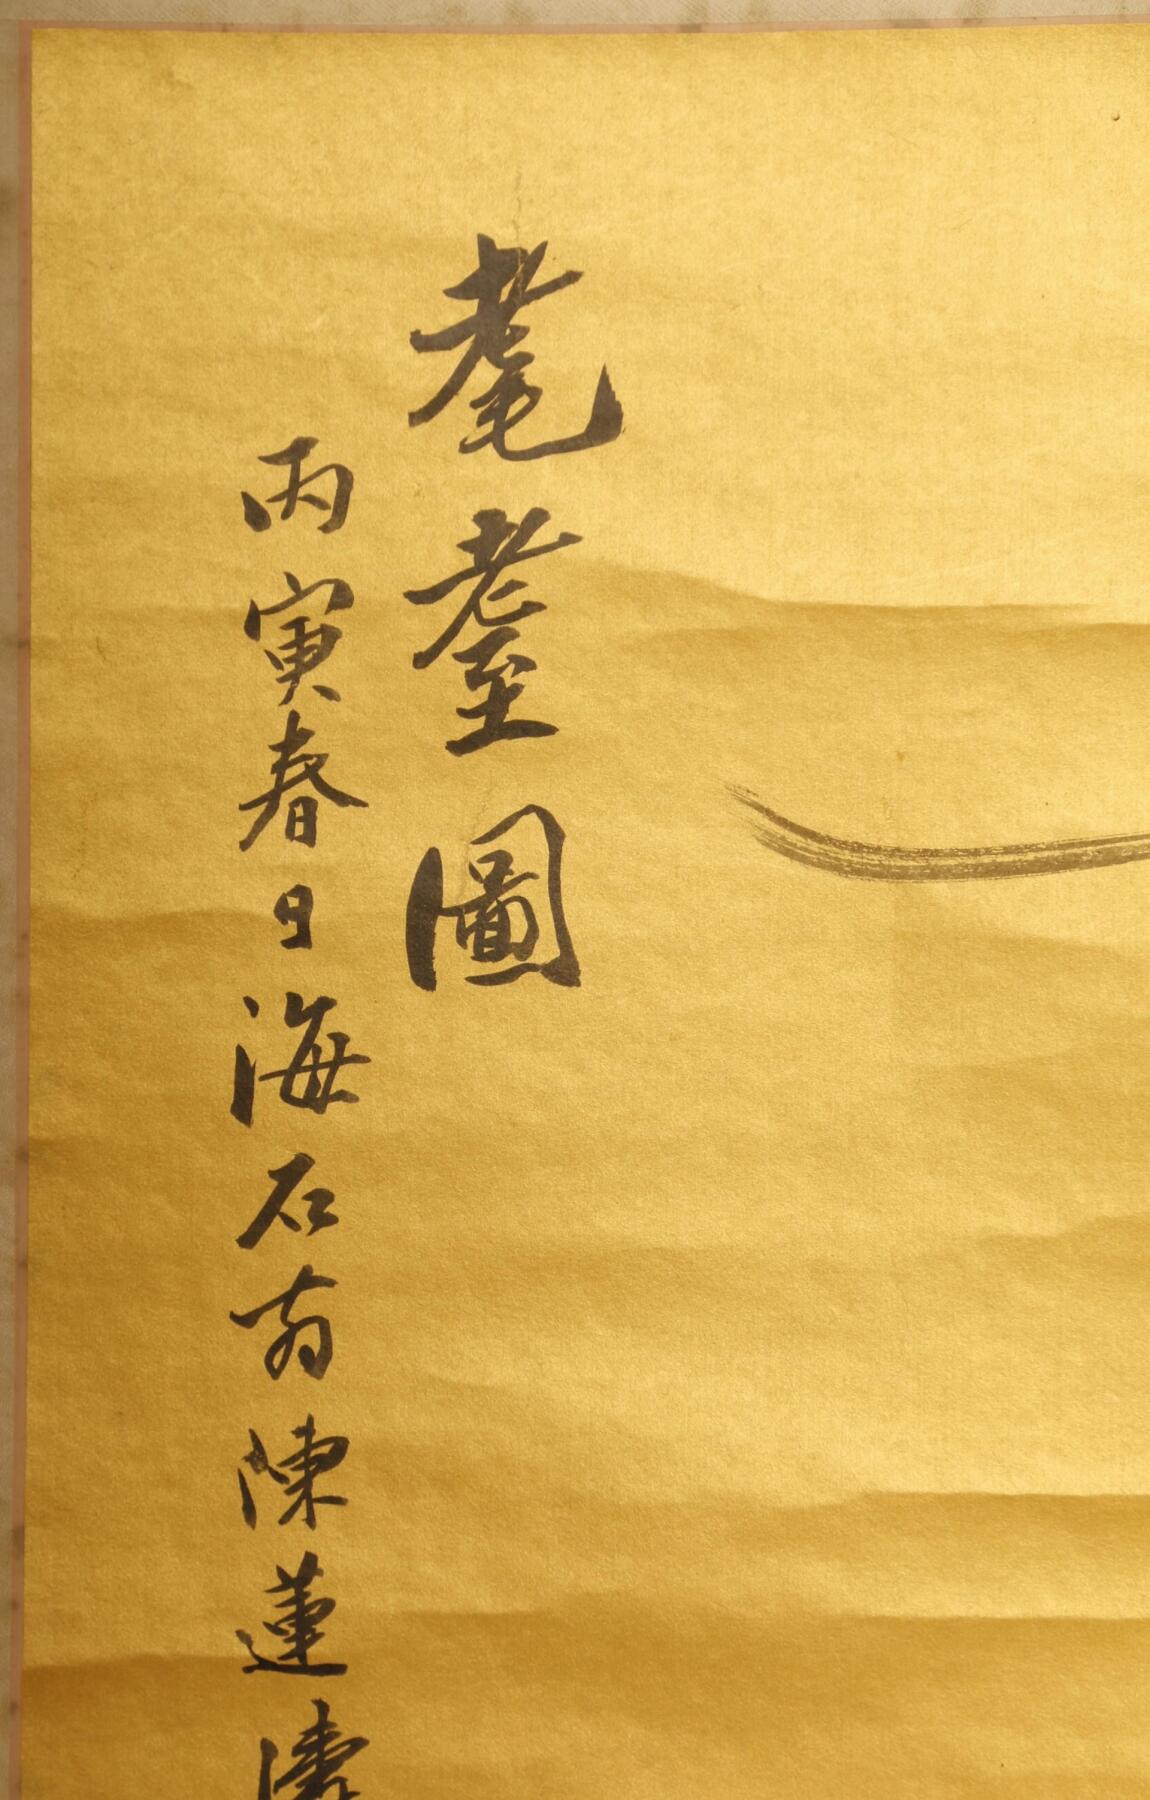 耄耋圖
丙寅春日海石翁陳蓮濤